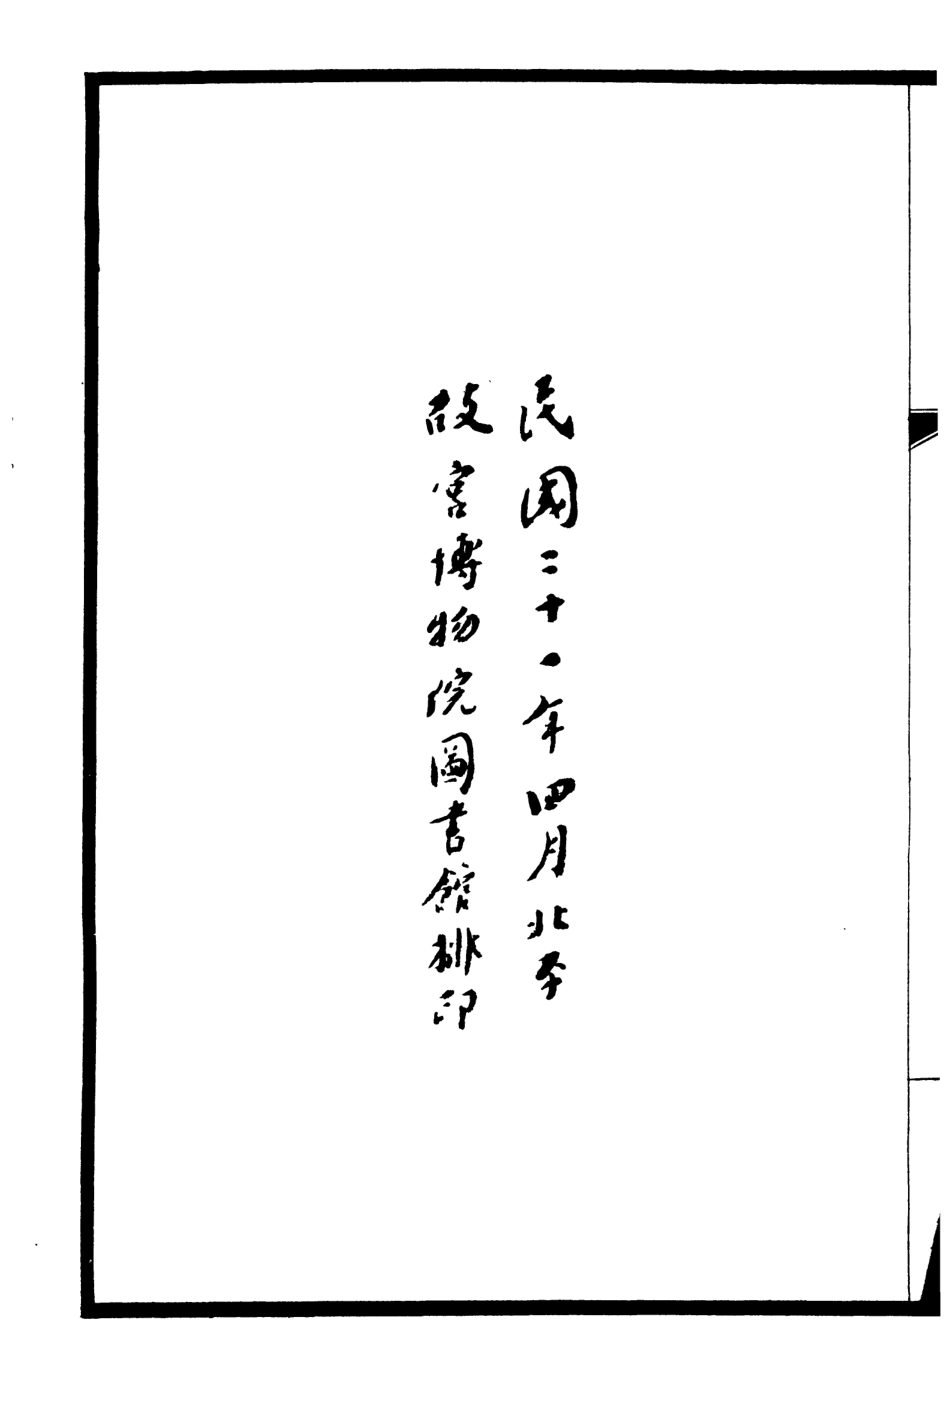 民國二十一年四月北平
故宮博物院圖書館排印